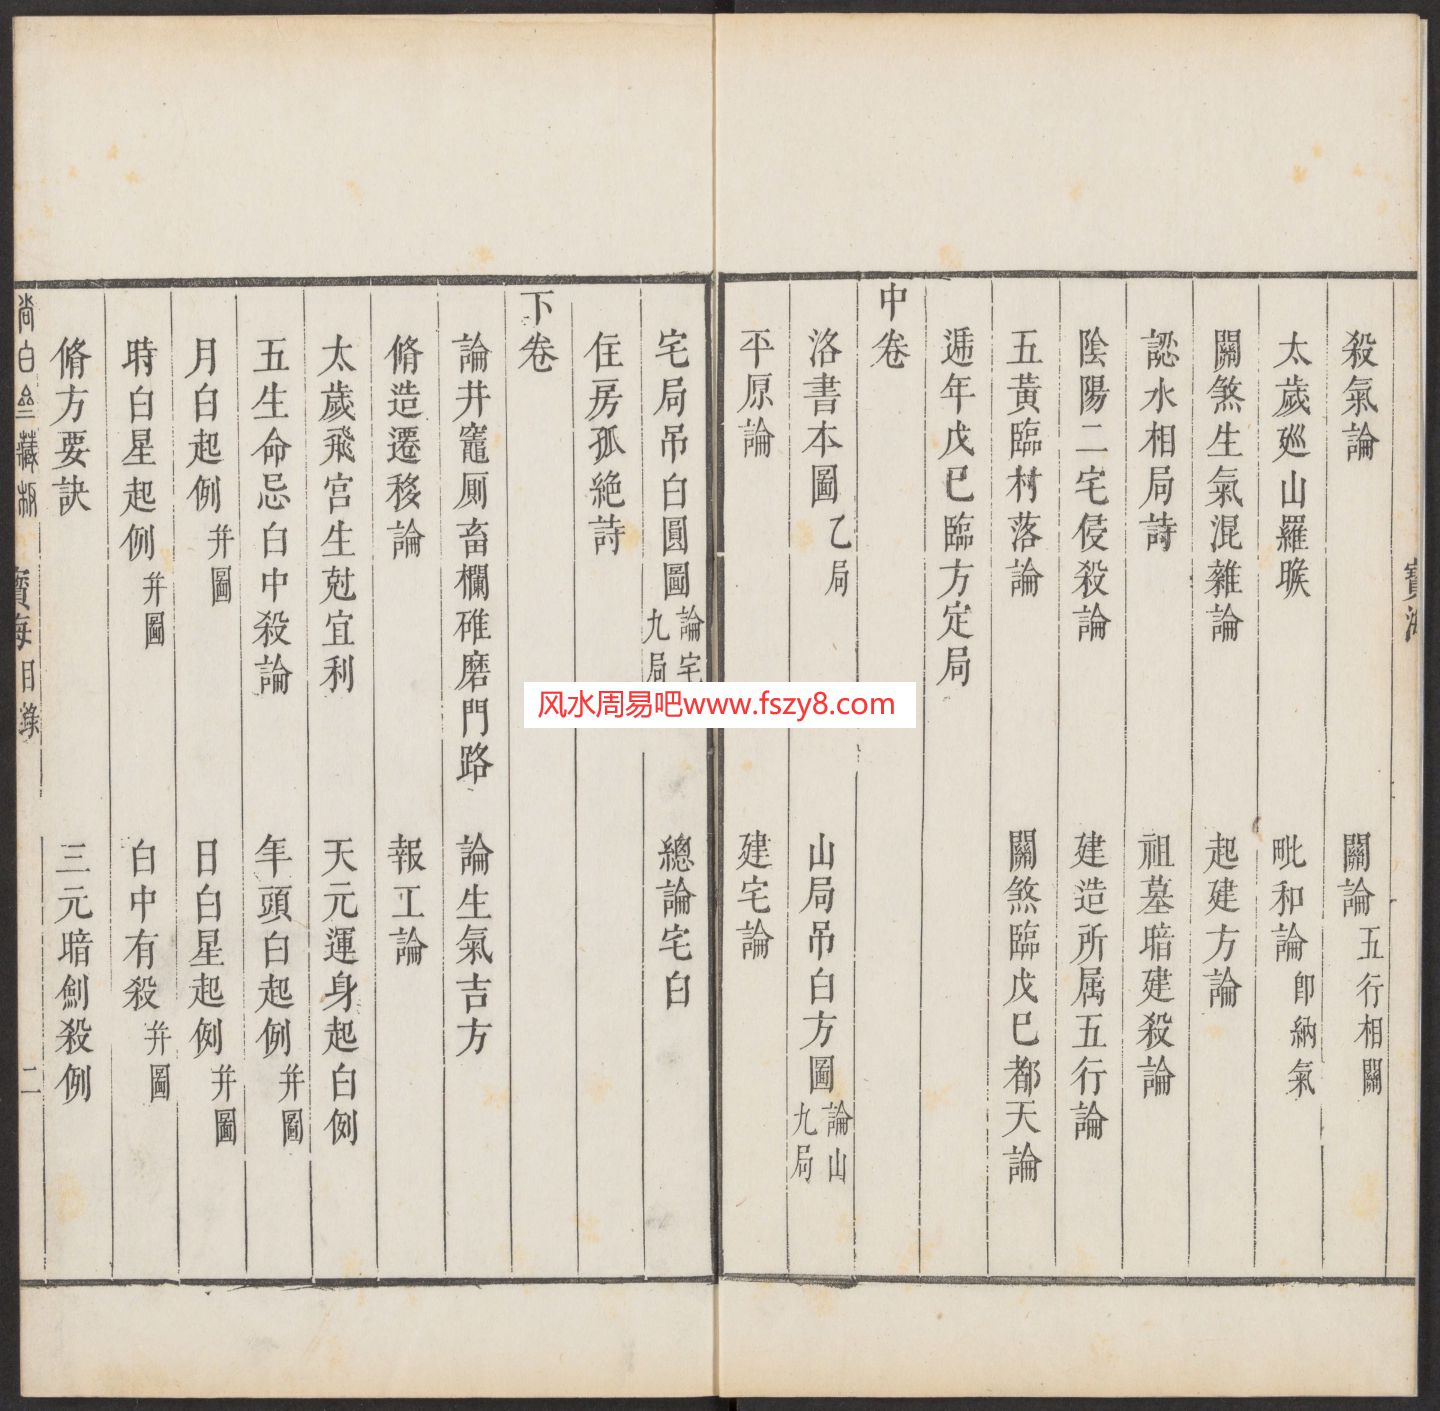 寶海
殺氣論　關論五行相關
太歲廵山羅㬋　毗和論即納氣
關煞生氣混雜論　起建方論
認水相局詩　祖墓暗建殺論
陰陽二宅侵殺論　建造所属五行論
五黃臨村落論　關煞臨戊巳都天論
遞年戊巳臨方定局
中卷
洛書本圖乙局　山局吊白方圖論山九局
平原論　建宅論
宅局吊白圓圖論宅九局　總論宅白
住房孤絶詩
下卷
論井竈厠畜欄碓磨門路　論生氣吉方
脩造遷移論　報工論
太歲飛宫生尅宜利　天元運身起白例
五生命忌白中殺論　年頭白起例并圖
月白起例并圖　日白星起例并圖
時白星起例并圖　白中有殺并圖
脩方要訣　三元暗劍殺例
尚白齋藏板　寶海目录　二
风水周易吧www.fszy8.com